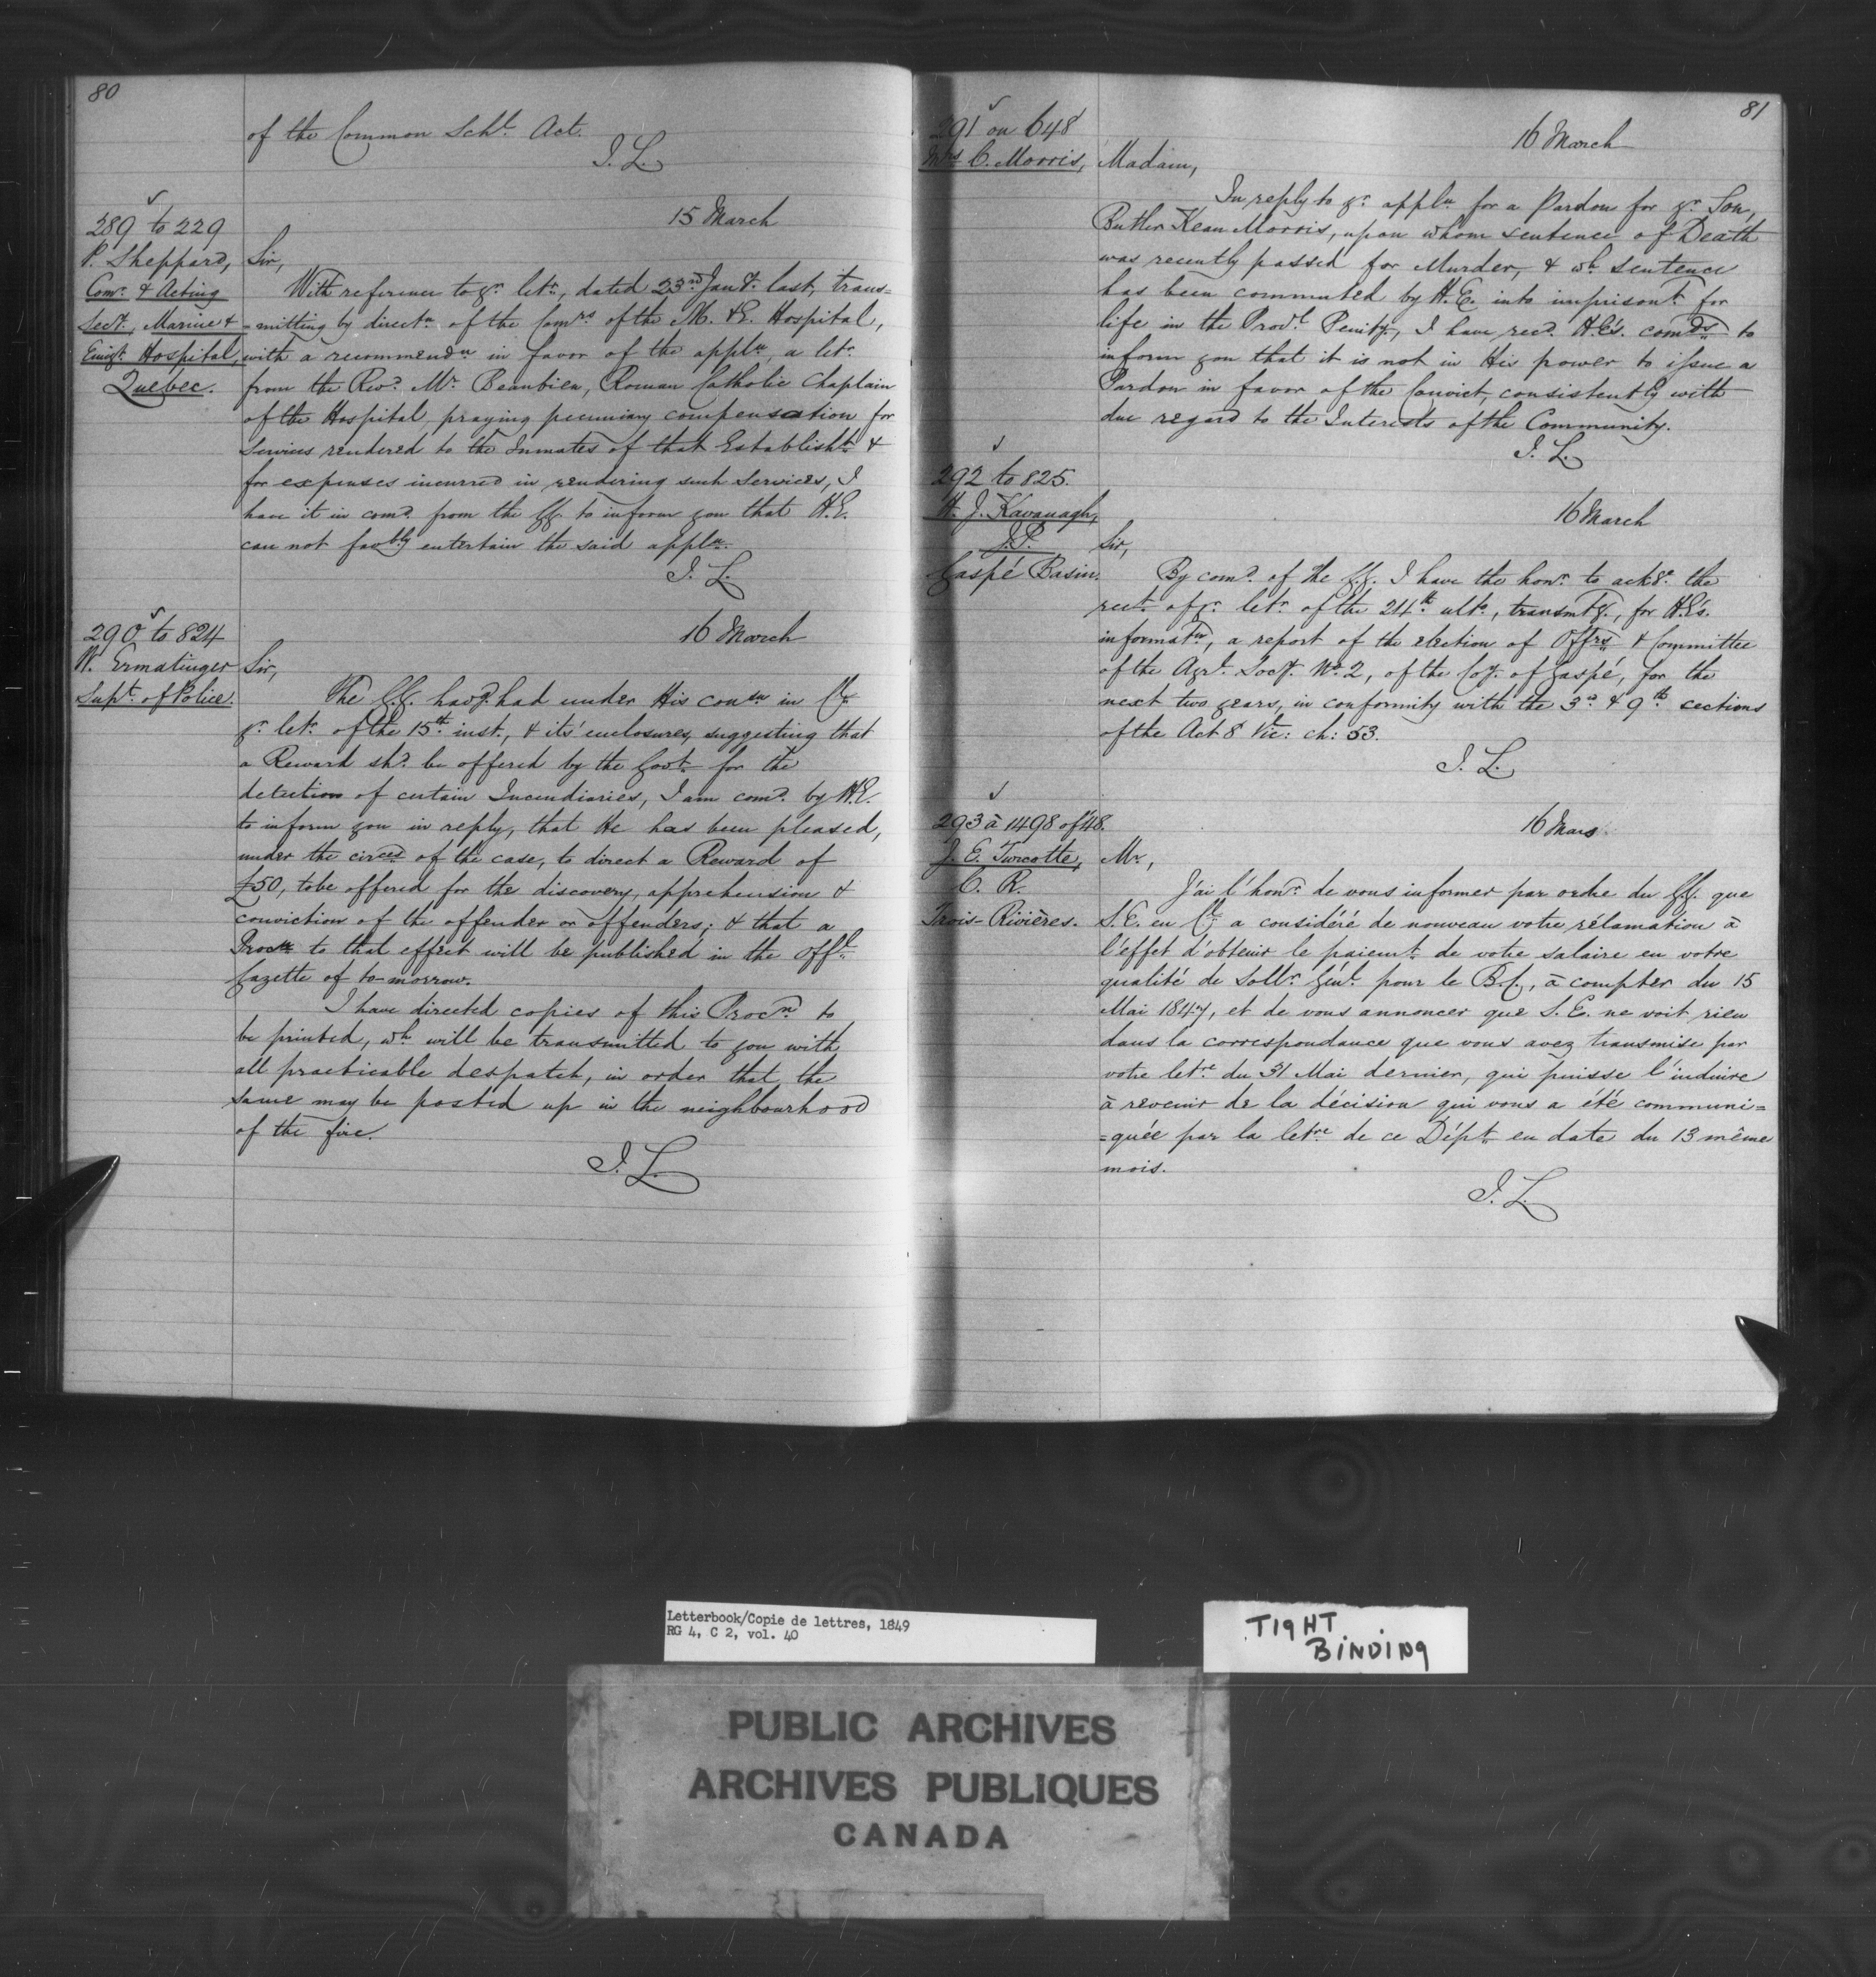 80
of the Common Schl. Act.
J. L.
289 to 229
P. Sheppard,
Comr. & Acting
Secy. Marine &
Emigt. Hospital,
Quebec.
15 March
Sir,
With reference to yr. letr., dated 23rd Jany. last, trans=
=mitting by directn. of the Comrs of the M. & E. Hospital,
with a recommendn. in favor of the appln., a letr.
from the Revd. Mr. Beaubien, Roman Catholic Chaplain
of the Hospital, praying pecuniary compensation for
Services rendered to the Inmates of that Establisht. &
for expenses incurred in rendering such Services, I
have it in comd. from the GG. to inform you that H.E.
can not favbly entertain the said appln.
J. L.
290 to 824
W. Ermatinger
Supt. of Police.
16 March
Sir,
The G.G. havg. had under His consn in Cl.
yr. letr. of the 15th. inst., & its' enclosures, suggesting that
a Reward shd. be offered by the Govt. for the
detection of certain Incendiaries, I am comd. by H.E.
to inform you in reply, that He has been pleased,
under the circes of the case, to direct a Reward of
£50, to be offered for the discovery, apprehension &
conviction of the offender or offenders; & that a
Procn. to that effect will be published in the Offl.
Gazette of to-morrow.
I have directed copies of this Procn. to
be printed, wh. will be transmitted to you with
all practicable despatch, in order that the
same may be posted up in the neighbourhood
of the fire.
J. L.
81
291 on 648
Mrs C. Morris,
16 March
Madam,
In reply to yr. appln. for a Pardon for yr. Son,
Butler Kean Morris, upon whom sentence of Death
was recently passed for Murder, & wh. sentence
has been commuted by H.E. into imprisont. for
life in the Provl. Penity, I have recd. H.E's. comds. to
inform you that it is not in His power to issue a
Pardon in favor of the Convict, consistently with
due regard to the Interests of the Community.
J. L.
292 to 825.
H. J. Kavanagh,
J.P.
Gaspé Basin.
16 March
Sir,
By comd. of the G.G. I have the honr. to ackge. the
rect. of yr. letr. of the 24th. ulto., transmtg., for H.E's.
informatn., a report of the election of Offrs. & Committee
of the Agrl. Socy. No. 2, of the Coy. of Gaspé, for the
next two years, in conformity with the 3rd. & 9th. sections
of the Act 8 Vic: ch: 53.
J. L.
293 à 1498 of 48.
J. E. Turcotte,
C. R.
Trois-Rivières.
16 Mars
Mr.,
J'ai l'honr. de vous informer par ordre du G.G. que
S.E. en Cl. a considéré de nouveau votre réclamation à
l'effet d'obtenir le paiemt. de votre salaire en votre
qualité de Sollr. Génl. pour le B.C., à compter du 15
Mai 1847, et de vous annoncer que S.E. ne voit rien
dans la correspondance que vous avez transmise par
votre letre. du 31 Mai dernier, qui puisse l'induire
à revenir de la décision qui vous a été communi=
=quée par la letre. de ce Dépt. en date du 13 même
mois.
J. L.
Letterbook/Copie de lettres, 1849
RG 4, C 2, vol. 40
TIGHT
BINDING
PUBLIC ARCHIVES
ARCHIVES PUBLIQUES
CANADA